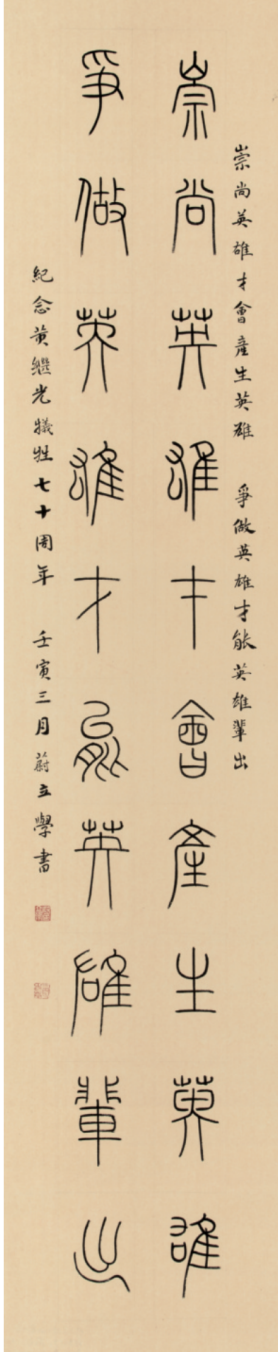 崇尚英雄才會產生英雄　爭做英雄才能英雄輩出
崇尚英雄才會產生英雄
爭做英雄才能英雄輩出
紀念黄繼光犧牲七十周年　壬寅三月蔚立學書